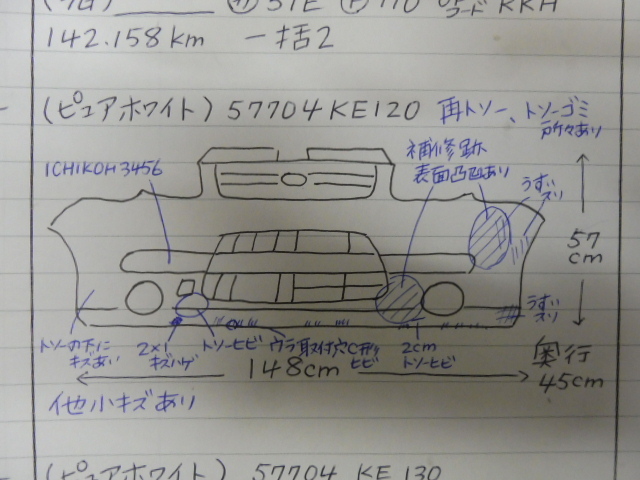 57E 170 コード KKH
142.158km 一括2
(ピュアホワイト) 57704KE120 再トソー、トソーゴミ
所々あり
ICHIKOH3456
補修跡
表面凸凹あり
うすい
スリ
57
cm
うすい
スリ
トソーの下に
キズあり
2×1
キズハゲ
トソーヒビ
ウラ取付穴C形
ヒビ
2cm
トソーヒビ
148cm
奥行
45cm
他小キズあり
(ピュアホワイト) 57704 KE130